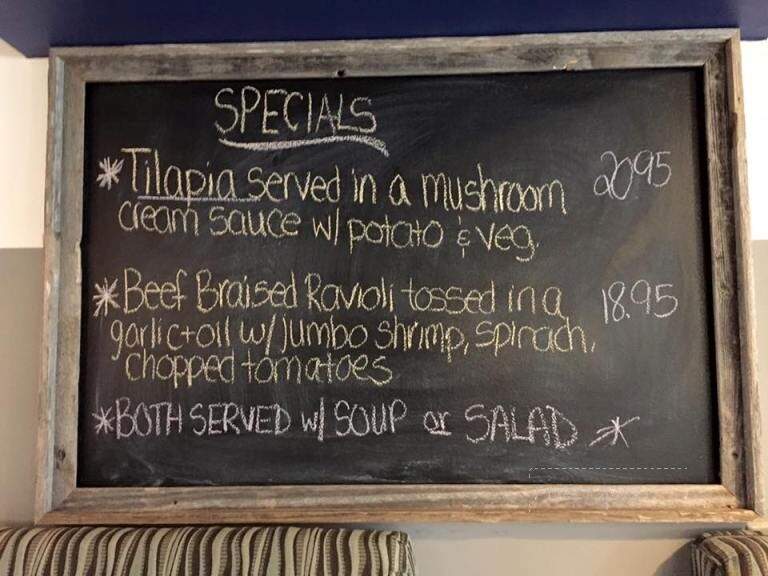 SPECIALS
*Tilapia served in a mushroom 20.95
cream sauce w/ potato & veg.
*Beef Braised Ravioli tossed in a 18.95
garlic+oil w/ jumbo shrimp, spinach,
chopped tomatoes
*BOTH SERVED w/ SOUP or SALAD *